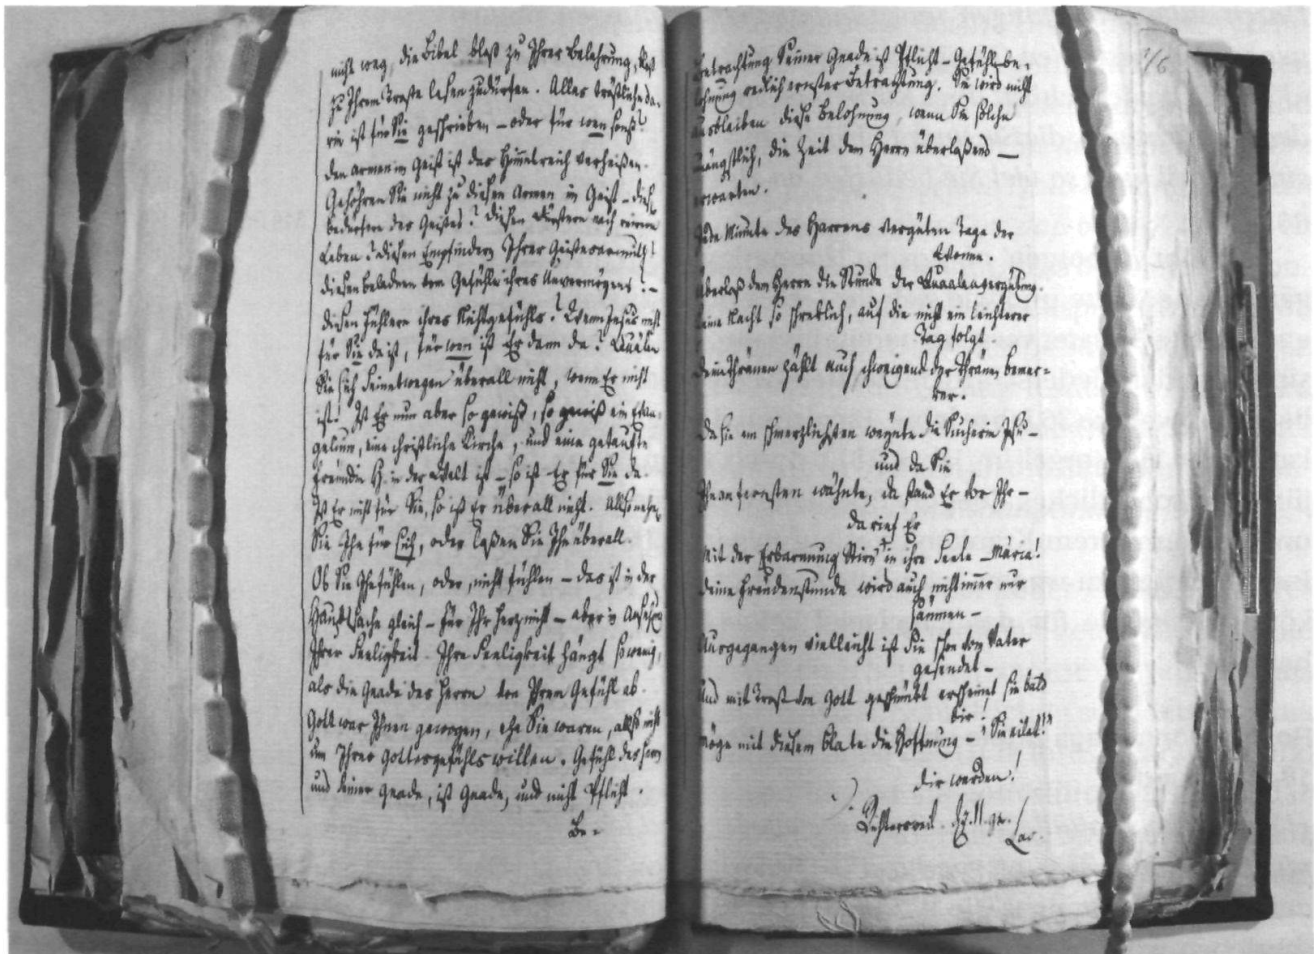 nicht weg, die Bibel blos zu Ihrer Belehrung, blos
zu Ihrem Troste lesen zu dürfen. Alles tröstliche da-
rin ist für Sie geschrieben – oder für wen sonst?
den armen im Geist ist das Himmelreich verheißen.
Gehöhren Sie nicht zu diesen Armen in Geist – dies.
bedörfern des Geistes? diesen Dürstern nach reinem
Leben? diesen Empfindern Ihrer Geistesarmuth?
diesen beladnen vom Gefühle ihres Unvermögens? –
diesen Fühlern ihres Nichtgefühls? Wenn Jesus nicht
für Sie da ist, für wen ist Er dann da? Quälen
Sie sich seinetwegen überall nicht, wenn Er nicht
ist. Ist Er nun aber so gewiß, so gewiß ein Evan-
gelium, eine christliche Kirche, und eine getaufte
Freündin H. in der Welt ist – so ist Er für Sie da.
Ist Er nicht für Sie, so ist Er überall nicht. Also nehmen
Sie Ihn für sich, oder laßen Sie Ihn überall.
Ob Sie Ihn fühlen, oder nicht fühlen – das ist in der
Hauptsache gleich – für Ihr Herz nicht – aber in Ansehung
Ihrer Seeligkeit. Ihre Seeligkeit hängt so wenig,
als die Gnade des Herrn von Ihrem Gefühl ab.
Gott war Ihnen gewogen, ehe Sie waren, also nicht
um Ihres Gottesgefühls willen. Gefühl des Herrn
und seiner Gnade, ist Gnade, und nicht Pflicht.
Be-
76
betrachtung Seiner Gnade ist Pflicht – Gefühl be-
lohnung redlich ernster Betrachtung. Sie wird nicht
ausbleiben diese Belohnung, wenn Sie solche
unängstlich, die Zeit dem Herrn überlaßend –
erwarten.
Jede Minute des Harrens vergüten Tage der
Wonne.
Überlaß dem Herrn die Stunde der Quaalenvergütung.
Keine Nacht so schreklich, auf die nicht ein leichterer
Tag folgt.
Deine Thränen zählt auch schweigend der Thränen bemer-
ker.
Da sie am schmerzlichsten weynte die Sucherin Jesu –
und da Sie
Ihn am fernsten wähnte, da stand Er vor Ihr –
da rief Er
Mit der Erbarmung Stimme in ihre Seele – Maria!
Deine Freüdenstunde wird auch nicht immer nur
säumen –
Ausgegangen vielleicht ist sie schon vom Vater
gesendet –
Und mit Trost von Gott geschmükt erscheint sie bald
dir.
Möge mit diesem Blate die Hoffnung – „Sie eilet!“
dir werden!
Richterswil.
Lav.